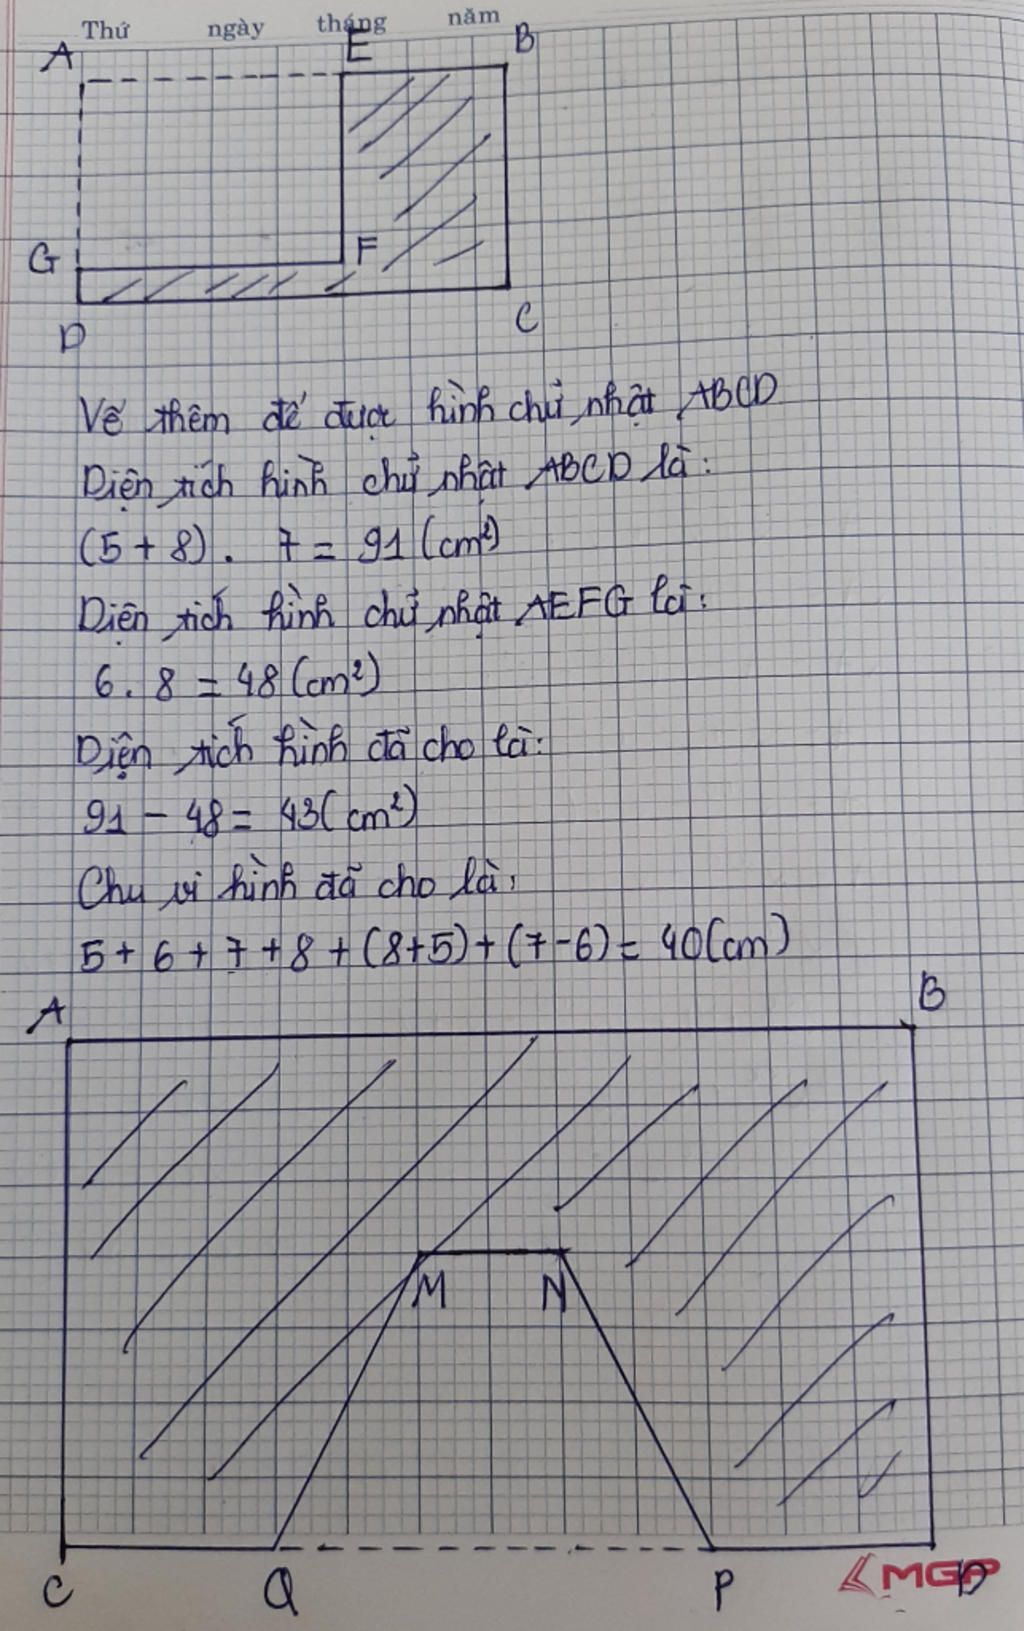 Thứ ngày tháng năm
A E B
G F
D C
Vẽ thêm để được hình chữ nhật ABCD
Diện tích hình chữ nhật ABCD là:
(5 + 8) . 7 = 91 (cm²)
Diện tích hình chữ nhật AEFG là:
6 . 8 = 48 (cm²)
Diện tích hình đã cho là:
91 - 48 = 43 (cm²)
Chu vi hình đã cho là:
5 + 6 + 7 + 8 + (8+5) + (7-6) = 40 (cm)
A B
M N
C Q P D
MGP